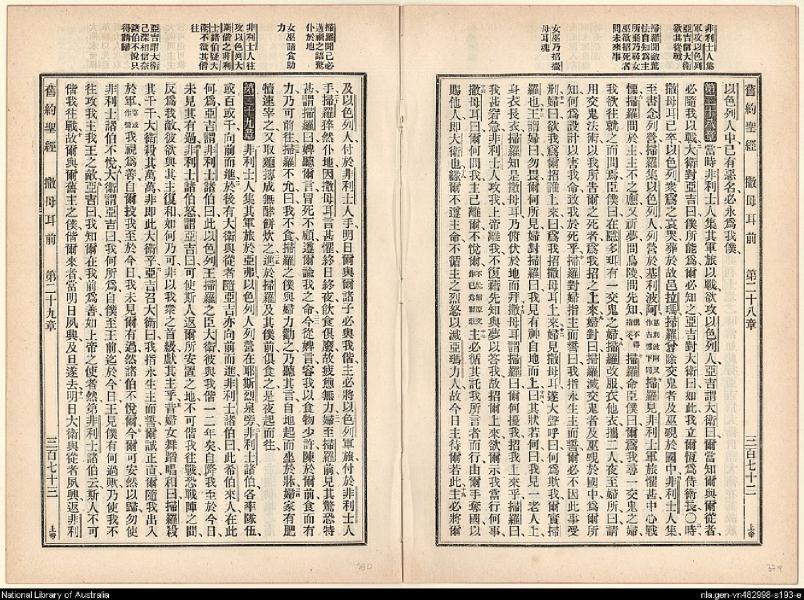 舊約聖經 撒母耳前 第二十八章 三百七十二
以色列人中已有惡名必永為我僕
第二十八章 當時非利士人集其軍旅以戰欲攻以色列人亞吉謂大衛曰爾當知爾與爾從者
必隨我以戰大衛對亞吉曰僕所能為爾必知之亞吉對大衛曰如此我立爾恆為侍衛長
撒母耳已卒以色列眾為之哀哭葬於故邑拉瑪掃羅曾除交鬼者及巫覡於國中非利士人集
至書念列營掃羅集以色列人列營於基利波阿
掃羅見非利士軍旅懼甚中心戰
慄掃羅問於主主不之應又祈夢問烏陵問先知
掃羅命臣僕曰爾為我尋一交鬼之婦
我欲往就之而問焉臣僕曰在隱多珥有一交鬼之婦掃羅改服衣他衣攜二人夜至婦所曰請
用交鬼法術以我所告爾之死者為我招之上來婦對曰掃羅滅交鬼者及巫覡於國中爾所
知何為設計以害我命致我於死乎掃羅對婦指主而誓曰我指永生主而誓爾必不因此事受
刑婦曰欲我為爾招誰上來曰為我招撒母耳上來婦見撒母耳遂大聲呼曰何為欺我爾實掃
羅也王謂婦曰勿畏爾何所見婦對掃羅曰我見有神自地而上曰其狀若何曰我見一老人上
身衣長衣掃羅知是撒母耳乃俯伏於地而拜撒母耳謂掃羅曰爾何擾我招我上來乎掃羅曰
我甚窘急非利士人攻我上帝離我不復藉先知與夢以答我故招爾上來欲爾示我當行何事
撒母耳曰爾何問我主已離爾不悅爾
主必循其託我所言者而行由爾手奪國以
賜他人即大衛也緣爾不遵主命不循主之烈怒以滅亞瑪力人故今日主待爾若此主必將爾
非利士人集
軍攻以色列
亞吉信大衛
欲其從戰
掃羅聞敵驚
怯自知為主
所棄乃尋女
巫欲招死者
問未來事
女巫乃招撒
母耳魂
舊約聖經 撒母耳前 第二十九章 三百七十三
及以色列人付於非利士人手明日爾與爾諸子必與我偕主必將以色列軍旅付於非利士人
手掃羅猝然仆地因撒母耳言甚懼終日終夜飲食俱廢故疲憊無力婦至掃羅前見其驚恐特
甚謂掃羅曰婢聽爾言冒死不顧遵爾諭我之命今從婢言容我以食物少許陳於爾前食而有
力乃可前往掃羅不允曰我不食掃羅之僕與婦力勸之乃聽其言自地起而坐於牀婦家有肥
犢速宰之又取麵摶成無酵餅炊之進於掃羅及其僕前俱食之是夜起而往
第二十九章 非利士人集其軍旅於亞弗以色列人列營在耶斯烈泉旁非利士諸伯各率隊伍
或百或千向前而進於後有大衛與從者隨亞吉亦向前而進非利士諸伯曰此希伯來人在此
何為亞吉謂非利士諸伯曰此以色列王掃羅之臣大衛彼與我偕一二年矣自降我至於今日
未見其有過非利士諸伯怒謂亞吉曰可使斯人返爾所安置之地不可偕我往戰恐戰陣之間
反為我敵彼欲與其主復和如何乃可非以我眾之首級獻其主乎昔婦女舞蹈唱和曰掃羅殺
其千千大衛殺其萬萬非即此大衛乎亞吉召大衛曰我指永生主而誓爾誠正直爾隨我出入
於軍我視為善自爾投我至於今日我未見爾有過然諸伯不悅爾今爾可安然以歸勿使
非利士諸伯不悅大衛謂亞吉曰我何所為自僕至王前迄於今日王見僕有何過歟乃使我不
往攻我主我王之敵亞吉曰我知爾在我前為善如上帝之使者然第非利士諸伯云斯人不可
偕我往戰故爾與爾舊主之僕偕爾來者當明日夙興及旦遂去明日大衛與從者夙興返非利
掃羅聞己必
遇禍之語驚
仆於地
女巫請食助
力
非利士人往
攻以色列大
衛偕之非利
士諸伯疑大
衛不欲其偕
往
亞吉謂大衛
己深相信奈
諸伯不悅只
得請歸
National Library of Australia
nla.gen-vn482998-s193-e